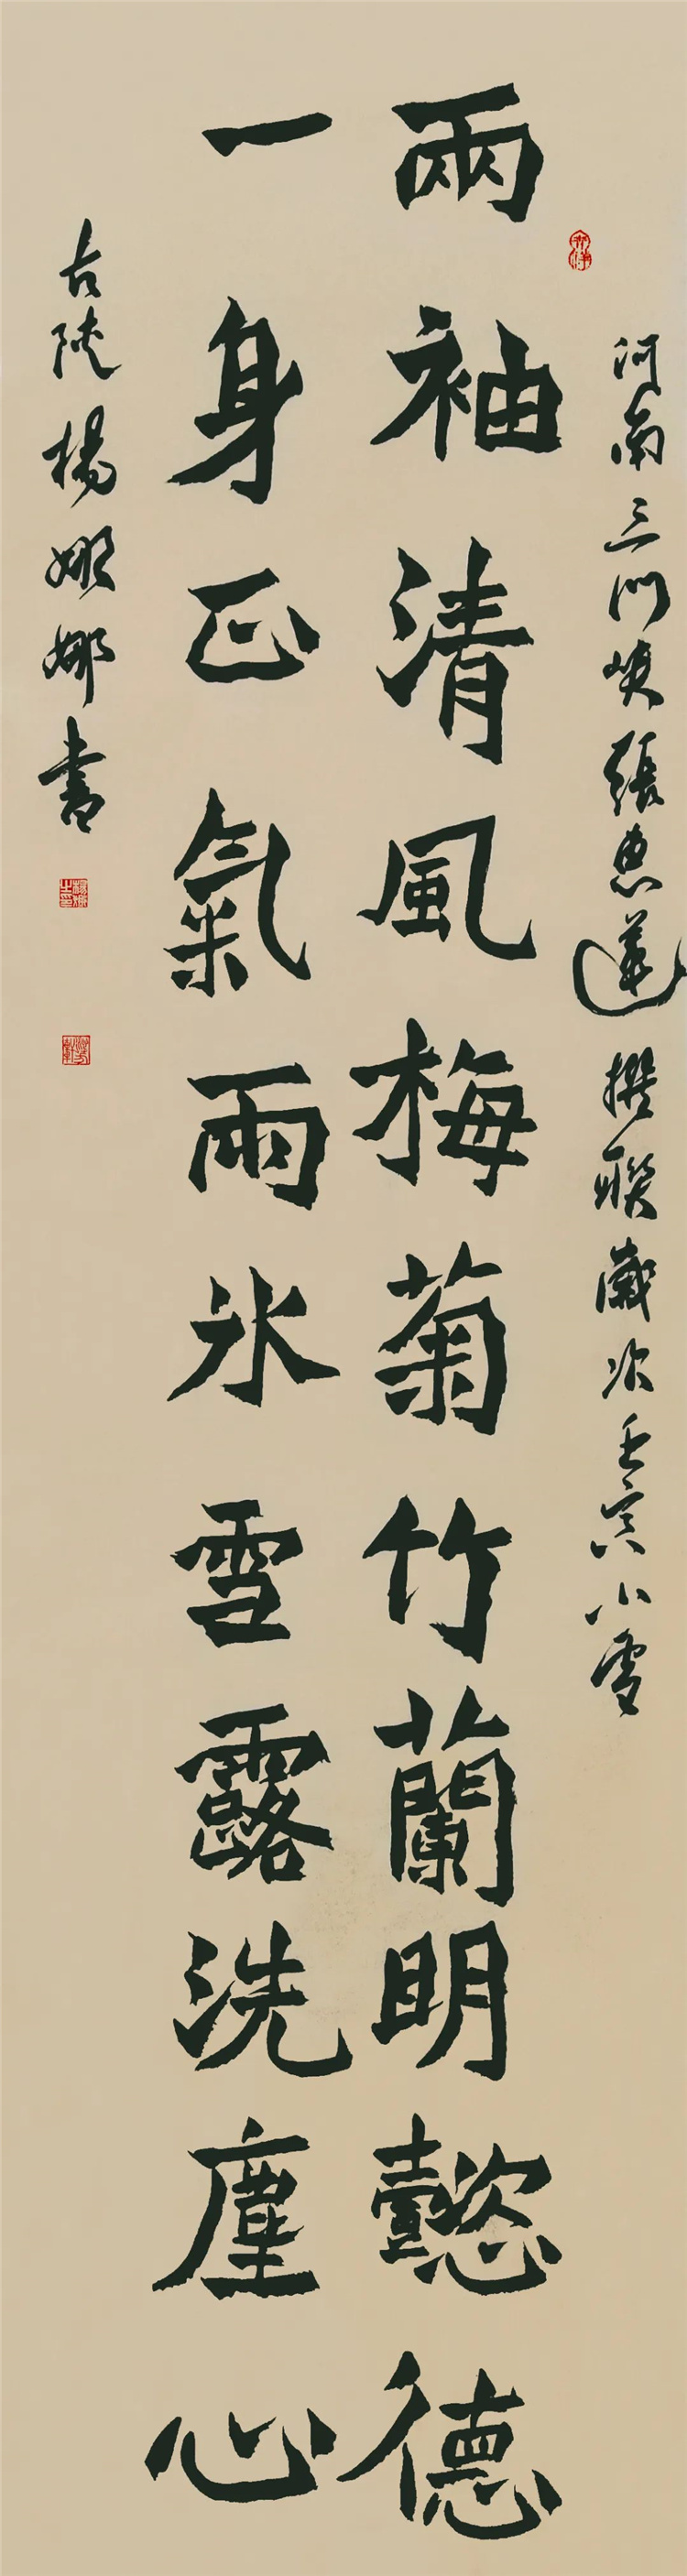 河南三门峡張惠蓮撰联歲次壬寅小雪
兩袖清風梅菊竹蘭明懿德
一身正氣雨冰雪露洗塵心
古陝楊娜娜書